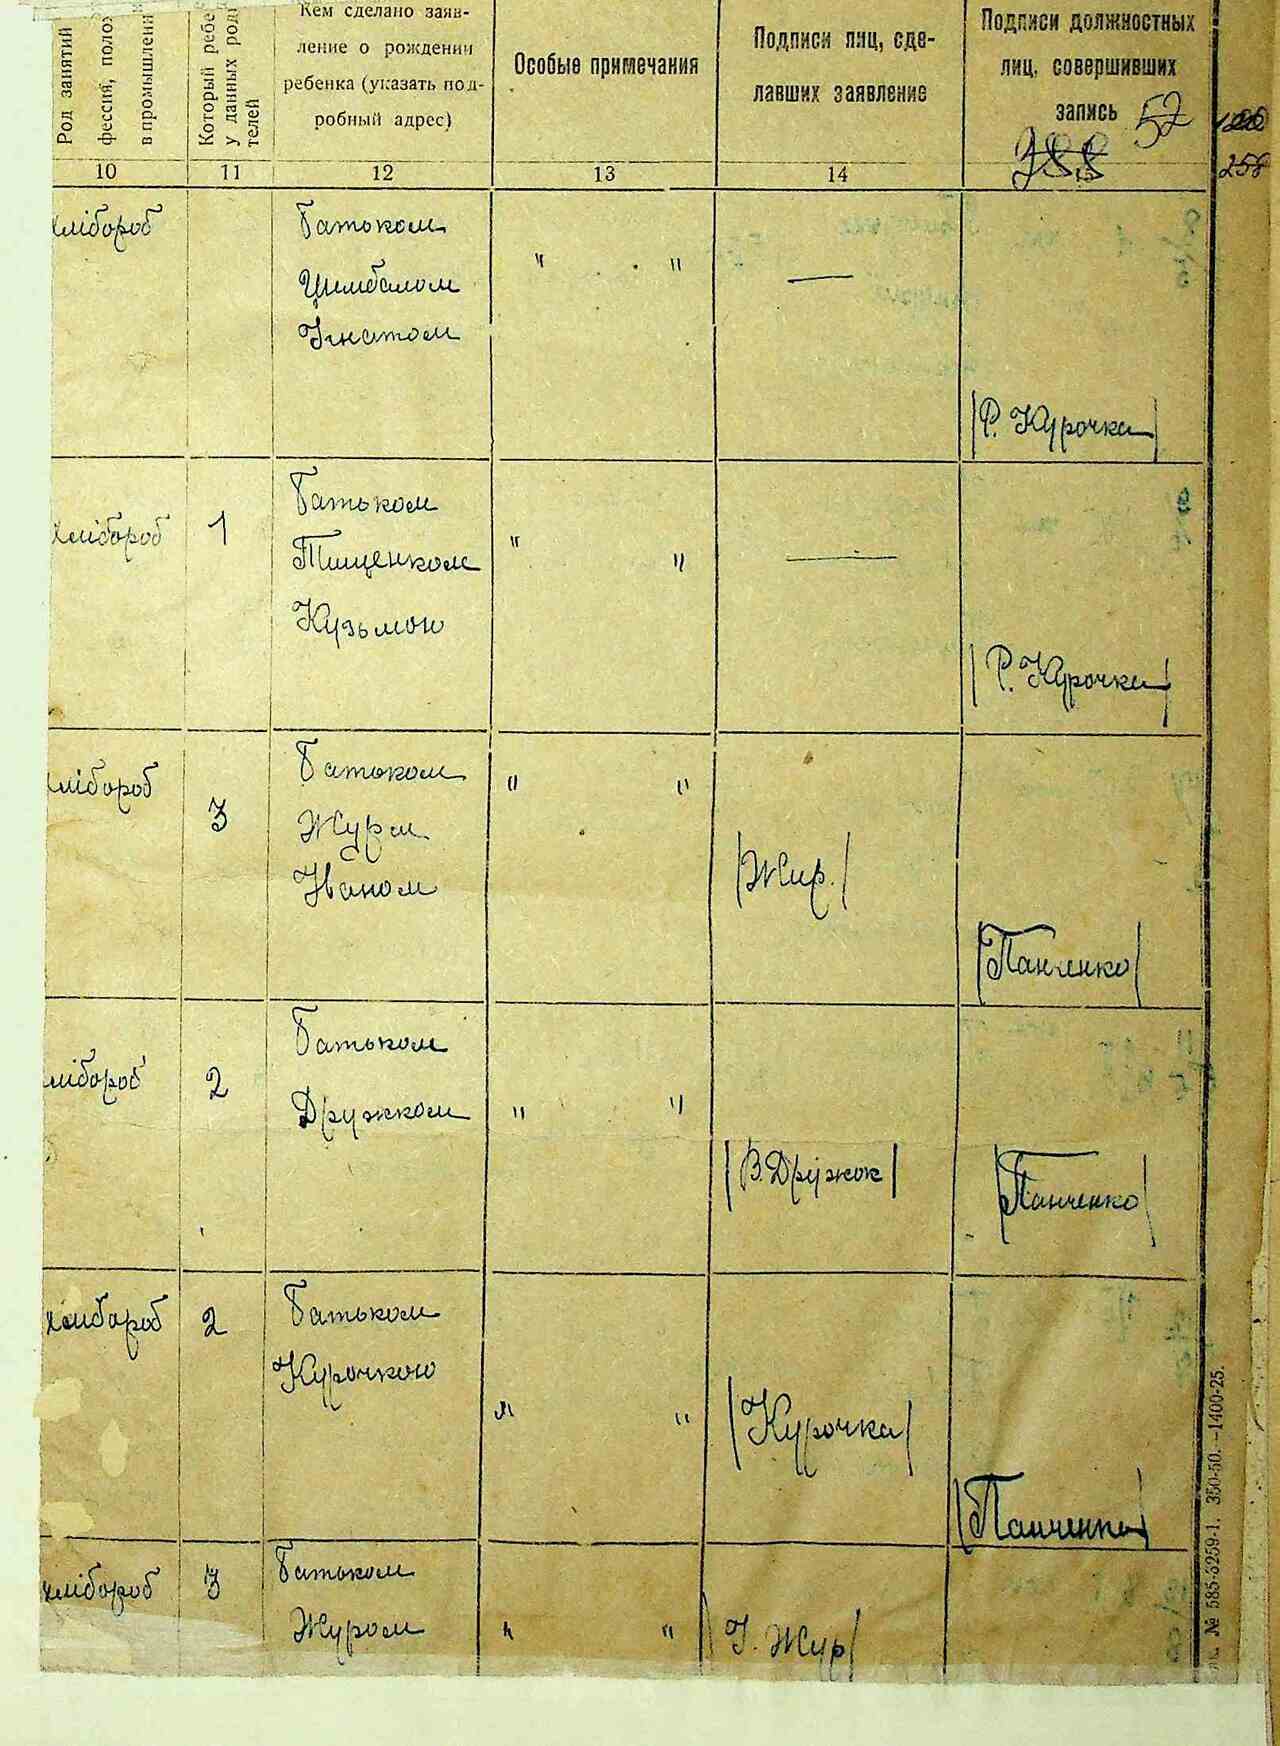 Род занятий
фессия, полож
в промышлени
Который ребе
у данных род
телей
Кем сделано заяв-
ление о рождении
ребенка (указать под-
робный адрес)
Особые примечания
Подписи лиц, сде-
лавших заявление
Подписи должностных
лиц, совершивших
запись
52
258
10
11
12
13
14
хлібороб
Батьком
Цимбалом
Ігнатом
" "
—
/Р. Курочка/
хлібороб
1
Батьком
Тищенком
Кузьмою
" "
—
/Р. Курочка/
хлібороб
3
Батьком
Журом
Іваном
" "
/Жур./
/Панченко/
хлібороб
2
Батьком
Дружком
" "
/В. Дружок/
/Панченко/
хлібороб
2
Батьком
Курочкою
" "
/Курочка/
/Панченко/
хлібороб
3
Батьком
Журом
" "
/І. Жур/
№ 585-3259-1. 350-50.-1400-25.